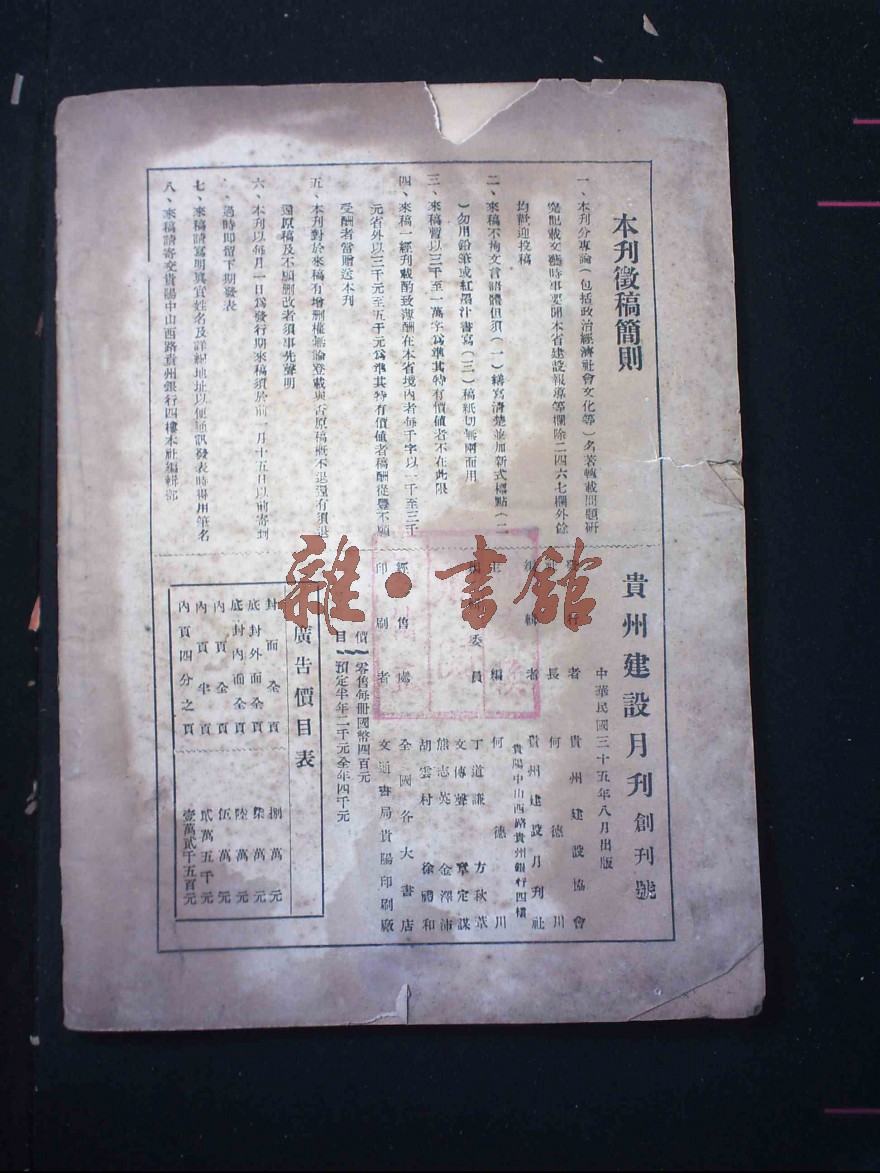 本刋徵稿簡則
一、本刋分專論（包括政治經濟社會文化等）名著轉載問題研
究記載文藝時事要聞本省建設報導等欄除二四六七欄外餘
均歡迎投稿
二、來稿不拘文言語體但須（一）繕寫淸楚並加新式標點（二
）勿用鉛筆或紅墨汁書寫（三）稿紙切無兩面用
三、來稿暫以三千至一萬字爲準其特有價値者不在此限
四、來稿一經刋載酌致薄酬在本省境內者每千字以一千至三千
元省外以三千元至五千元爲準其特有價値者稿酬從豐不願
受酬者當贈送本刋
五、本刋對於來稿有增删權無論登載與否原稿槪不退還有須退
還原稿及不願删改者須事先聲明
六、本刋以每月一日爲發行期來稿須於前一月十五日以前寄到
過時卽留下期發表
七、來稿請寫明眞實姓名及詳細地址以便通訊發表時得用筆名
八、來稿請寄交貴陽中山西路貴州銀行四樓本社編輯部
貴州建設月刋創刋號
中華民國三十五年八月出版
行者 貴州建設協會
社長 何德川
編輯者 貴州建設月刋社
貴陽中山西路貴州銀行四樓
主編 何德川
委員 丁道謙 方秋葦
文傳聲 寗定謀
熊志英 金澤沛
胡雲村 徐禮和
經售處 全國各大書店
印刷者 文通書局貴陽印刷廠
價目 零售每册國幣四百元
預定半年二千元全年四千元
廣吿價目表
封面全頁 捌萬元
底封外面全頁 柒萬元
底封內面全頁 陸萬元
內頁全頁 伍萬元
內頁半頁 貳萬五千元
內頁四分之頁 壹萬貳千五百元
雜·書館